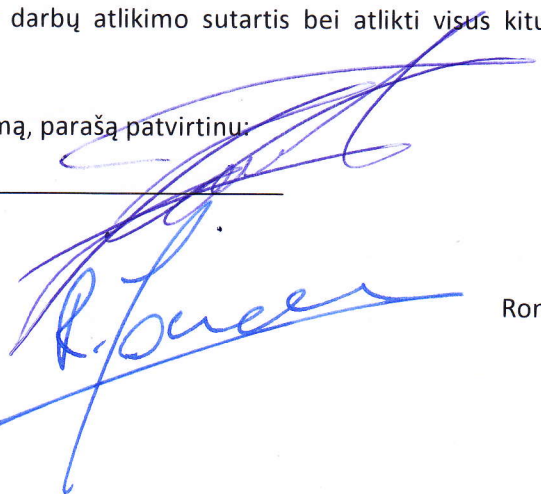 darbų atlikimo sutartis bei atlikti visus kitu
mą, parašą patvirtinu:
R.
Ror